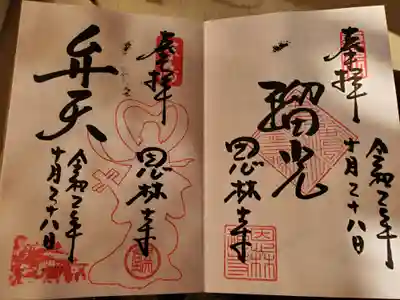 奉拝
令和二年
十月二十八日
瑠光
恩林寺
奉拝
恩林寺
弁天
令和二年
十月二十八日